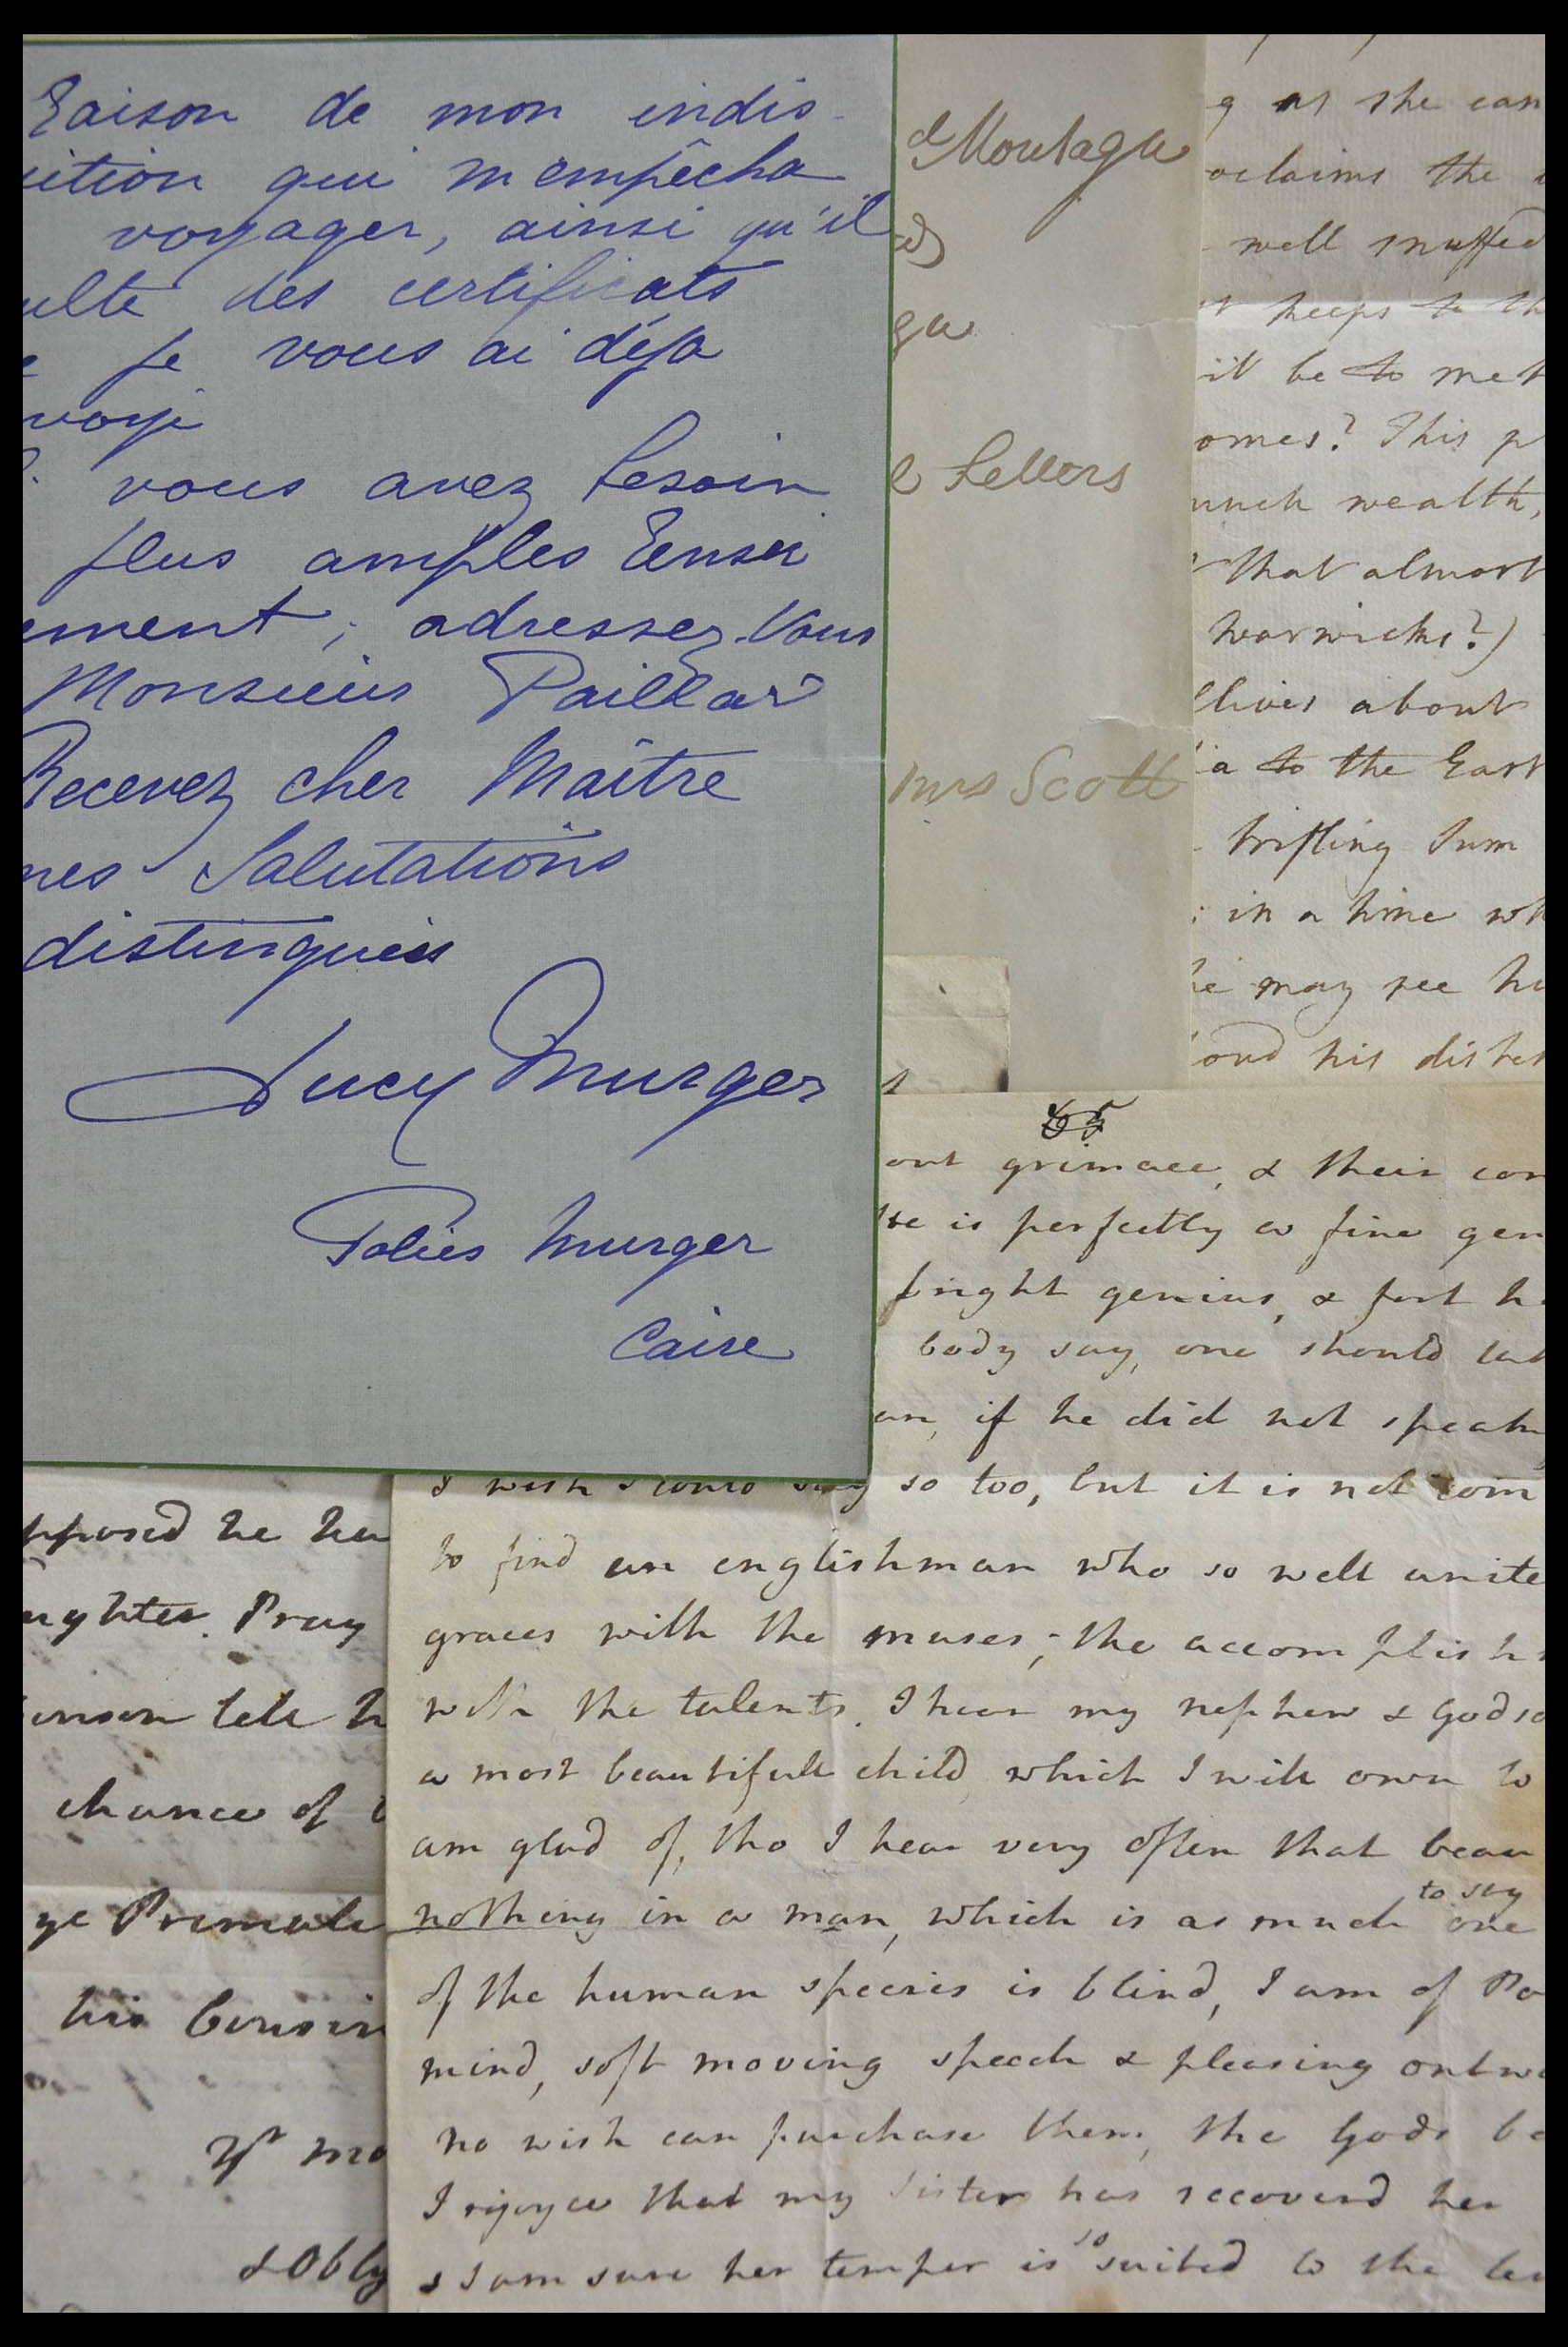 Raison de mon indis
ition qui m'empêcha
voyager, ainsi qu'il
ulte des certificats
je vous ai déja
voyé
vous avez besoin
plus amples Rensei
ement, adressez-Vous
Monsieur Paillar
Recevez cher Maître
mes Salutations
distinguées
Lucy Murger
Murger
Caire
Montagu
gu
Letters
Mrs Scott
g as she can
oclaims the
well snuffed
keeps to th
it be to met
omes? This p
much wealth,
that almost
Warwicks?)
llives about
a to the East
trifling Sum
in a time wh
he may see hi
his
65
out grimace, & their con
He is perfectly a fine gen
bright genius, &
body say, one should
an, if he did not speak
I wish I could say so too, but it is not com
to find an englishman who so well unite
graces with the muses, the accomplish
with the talents. I hear my nephew & Godso
a most beautifull child, which I will own to
am glad of, tho I hear very often that beau
nothing in a man, which is as much to say one
of the human species is blind, I am of Po
mind, soft moving speech & pleasing outwa
no wish can purchase them, the Gods be
I rejoyce that my Sister has recoverd her
I am sure her temper is so suited to the
pposed he
ughter. Pray
inson tell h
chance of
ye Primate
his Cousin
yr mo
& Obly